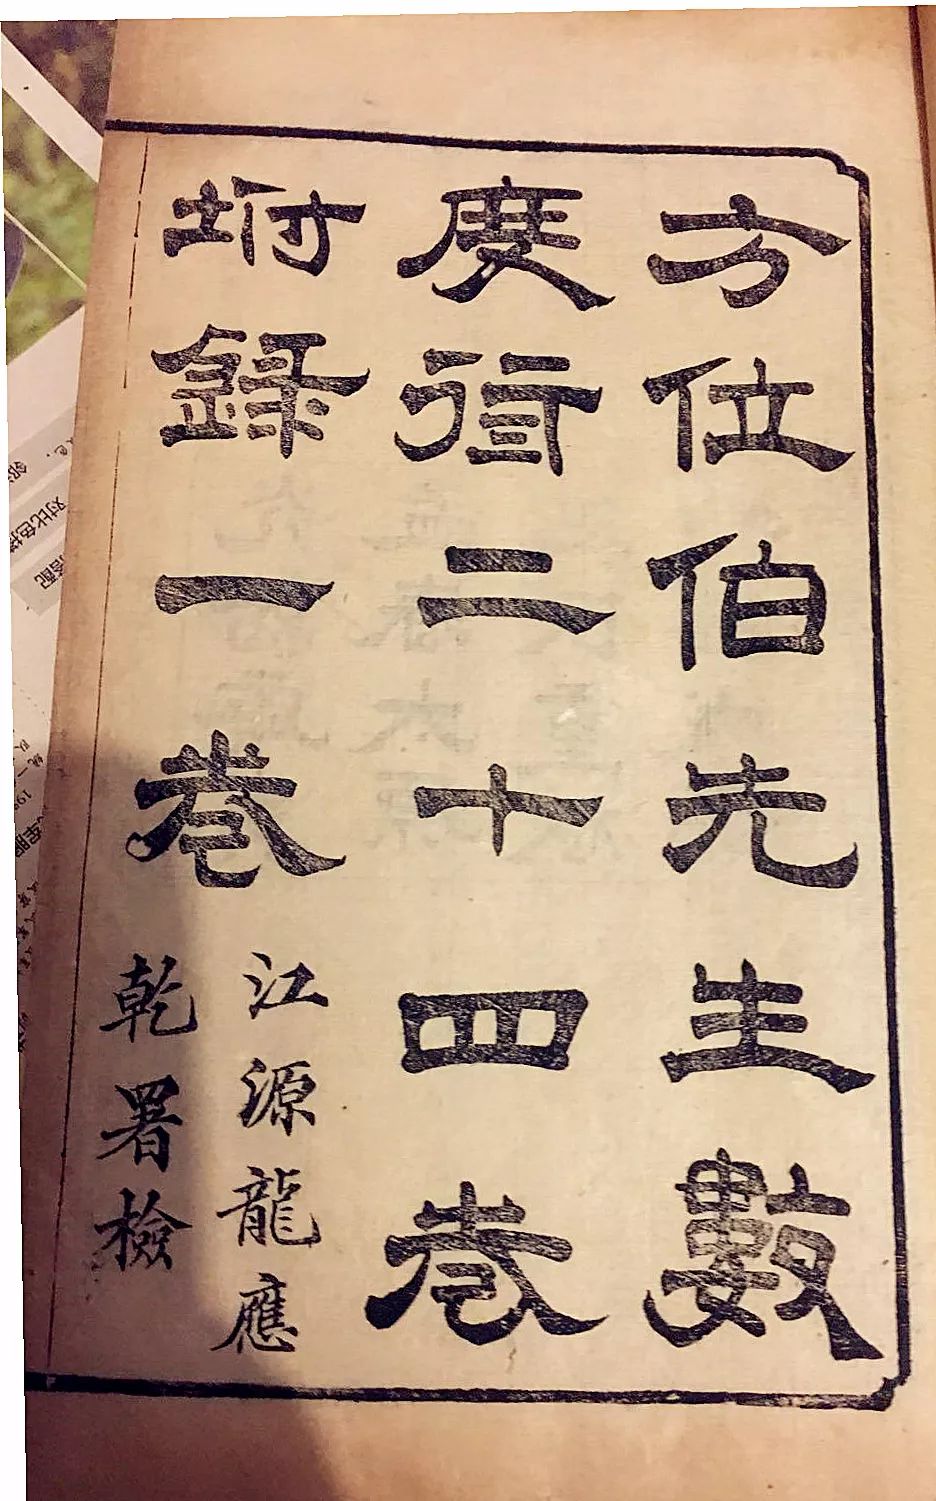 方位伯先生數
度衍二十四卷
坿錄一卷
江源龍應
乾署檢
对比色搭